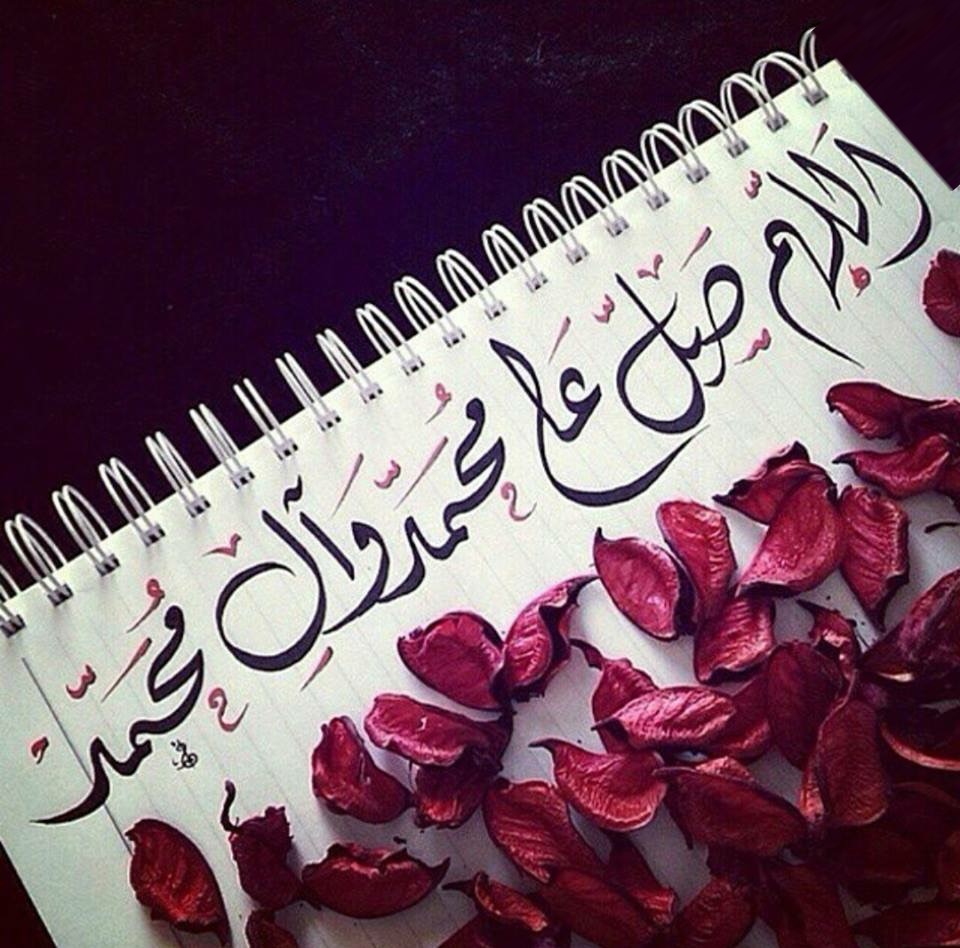 اللهم صل على محمد وآل محمد